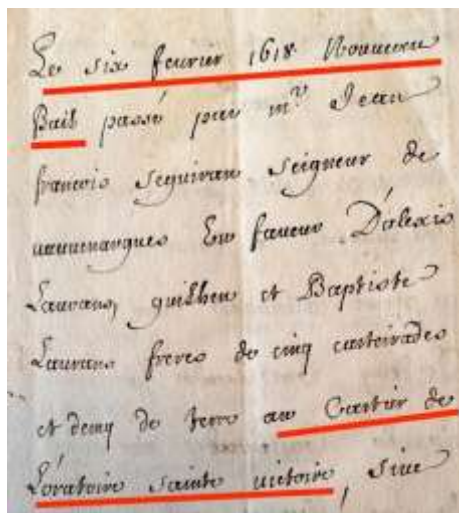 Le six feurier 1618 Nouueau
Bail passé par mr Jean
francois Seguiran Seigneur de
uauuenargues En faueur D'alexis
Laurans, guilhen et Baptiste
Laurans freres de cinq carteirades
et demy de terre au Cartier de
L'oratoire Sainte uictoire, siue